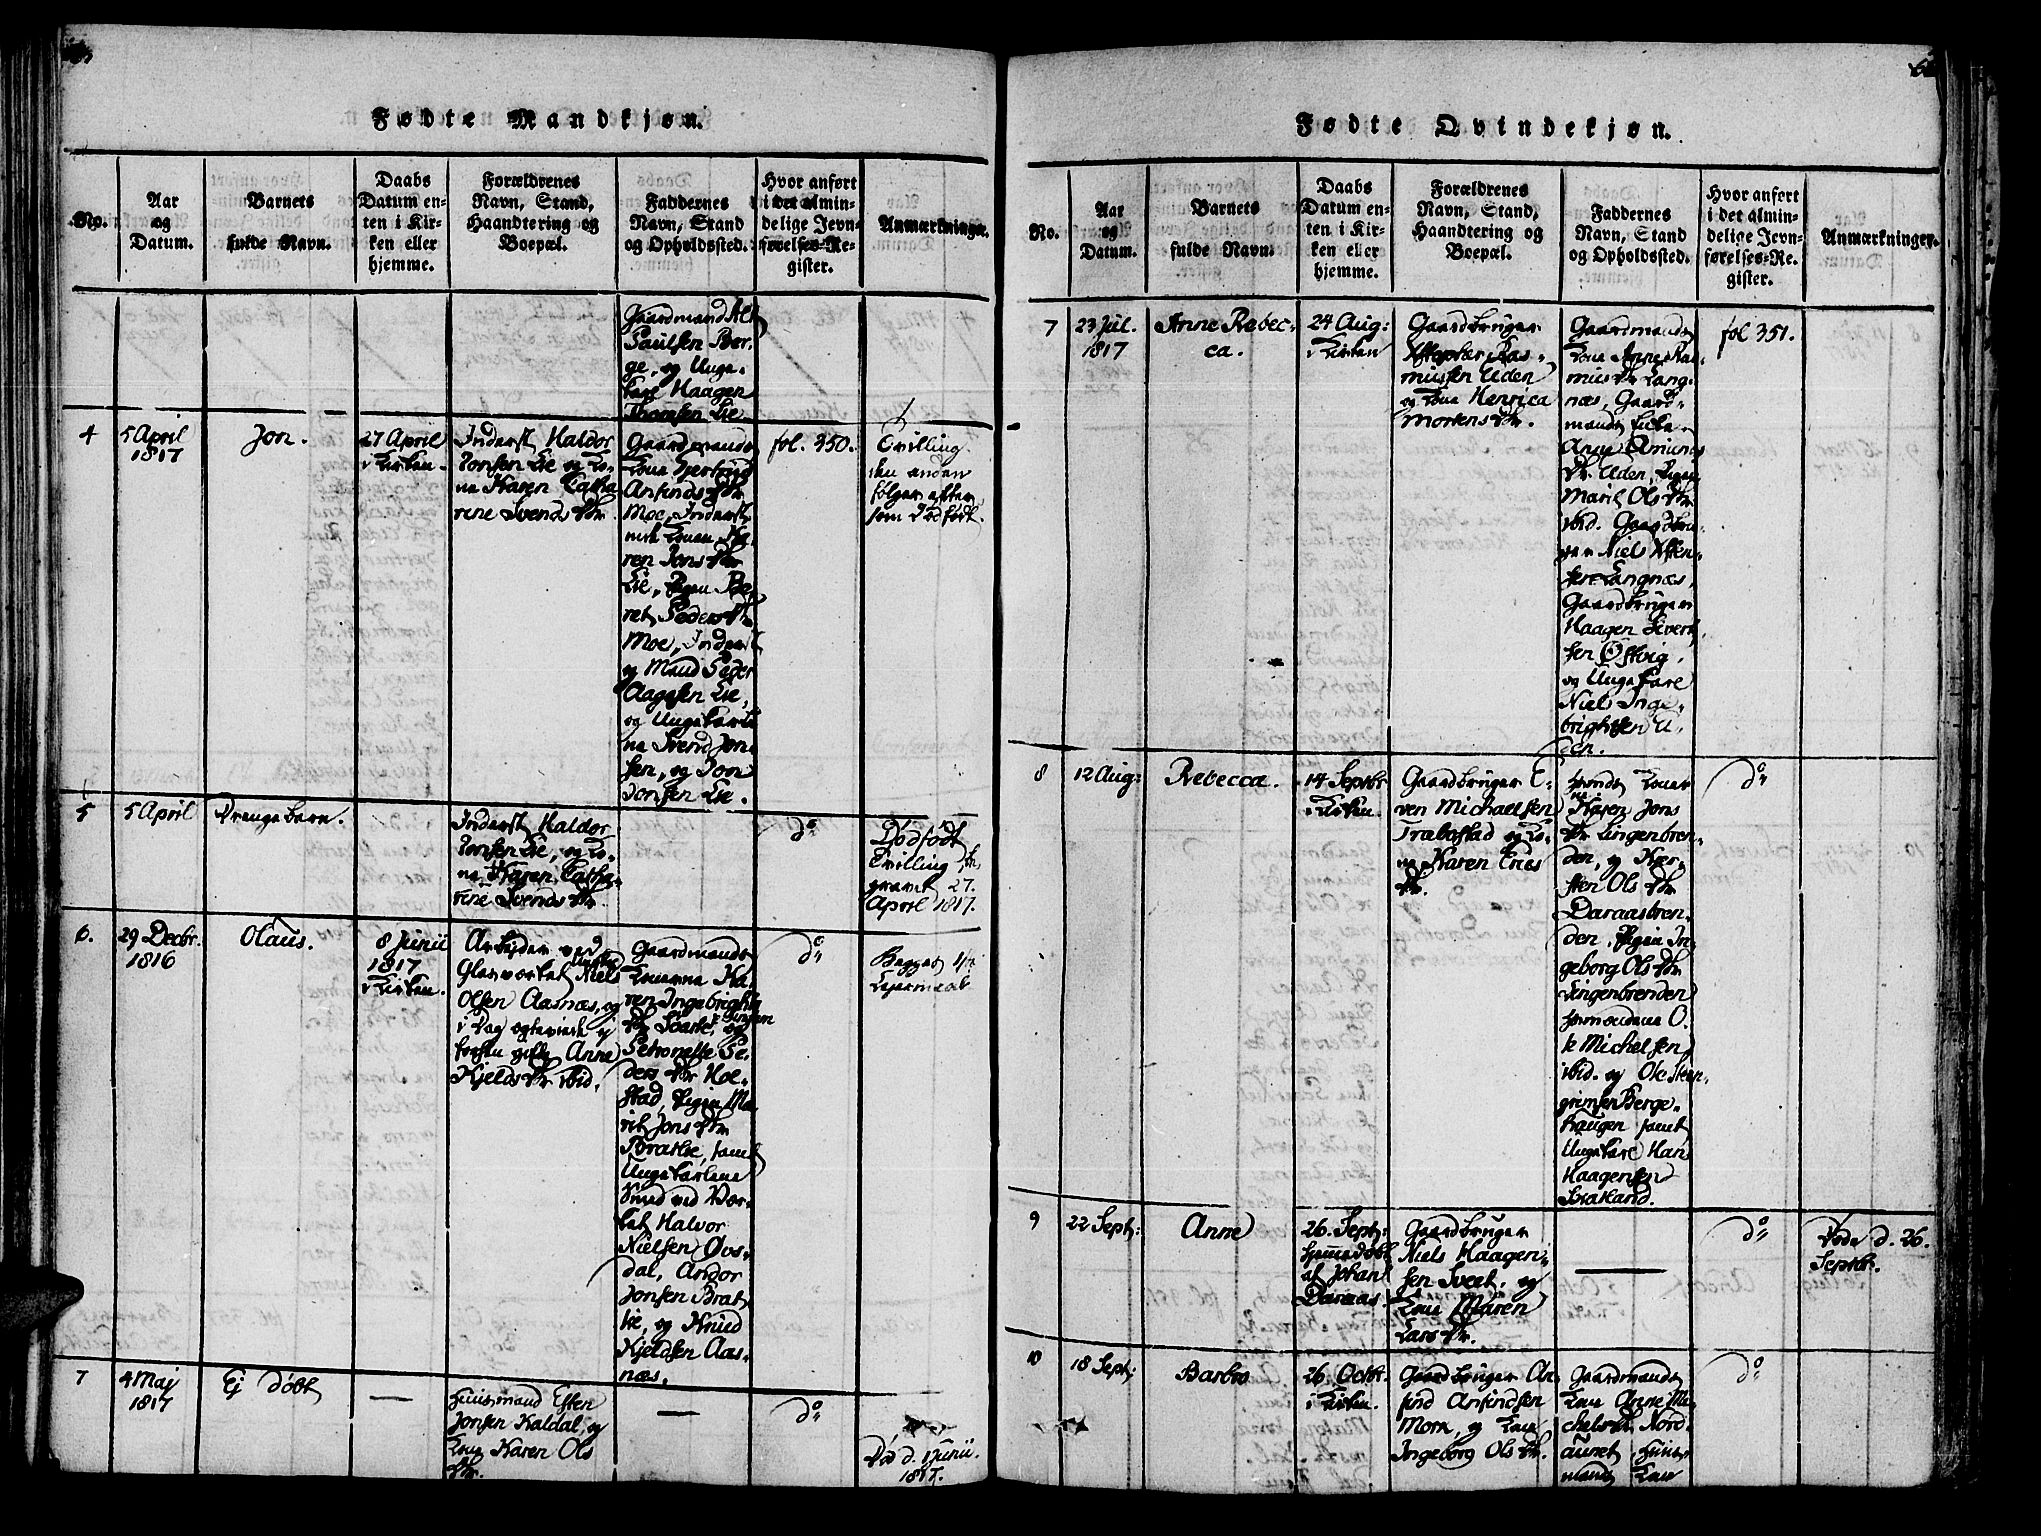 Fødte Mandkjøn.
No.
Aar
og
Datum.
Barnets
fulde Navn.
Daabs
Datum en-
ten i Kir-
ken eller
hjemme.
Forældrenes
Navn, Stand,
Haandtering og
Boepæl.
Faddernes
Navn, Stand
og Opholdssted.
Hvor anført
i det almin-
delige Jevn-
førelses-Re-
gister.
Anmærkninger.
Gaardmand
Paulsen Ber-
ge, og Unge-
karl Haagen
Thomsen Lie
4
5 April
1817
Jon.
27 April
i Kirken.
Inderst Haldor
Jonsen Lie og Ko-
ne Karen Catha
rine Svends Dtr.
Gaardmands
Kone Gertrud
Arfinds Dtr
Moe, Inderst
Konen Ka-
ren Jons Dtr
Lie, Pigen Be-
ret Peders Dtr
Moe, Inderst
og Mand Peder
Aagesen Lie,
og Ungekarle-
ne Svend Jon-
sen, og Jon
Jonsen Lie.
fol. 350.
Tvilling.
den anden
følger efter
som Dødfødt.
5
5 April
Drengebarn.
Inderst Haldor
Jonsen Lie, og Ko-
ne Karen Catha-
rine Svends Dtr.
do
Dødfødt
Tvilling be-
gravet 27.
April 1817.
6.
29 Decbr.
1816
Olaus.
8 Junii
1817
i Kirken.
Arbejder ved
Glasværket Niels
Olsen Aasnæs, og
i Dag ægteviede
Anne
Kjelds Dtr ibid.
Gaardmands
Konerne Ka-
ren Ingebrigts
Dtr
Petronelle Pe-
ders Dtr Hol-
stad, Pigen Ma-
rit Jons Dtr
Bratlie, samt
Ungekarlene
Smed ved Vær-
ket Halvor
Nielsen Øvs-
dal, Andor
Jonsen Brat
lie, og Knud
Kjeldsen Aas-
næs.
do
Begges 1ste
Lejermaal
7
4 Maj
1817
Ej døbt
—
Huusmand Esten
Jonsen Kaldal, og
Kone Karen Ols
Dtr.
—
do
Død d. 1 Junii.
1817.
Fødte Qvindekjøn.
No.
Aar
og
Datum.
Barnets
fulde Navn.
Daabs
Datum en-
ten i Kir-
ken eller
hjemme.
Forældrenes
Navn, Stand,
Haandtering og
Boepæl.
Faddernes
Navn, Stand
og Opholdssted.
Hvor anført
i det almin-
delige Jevn-
førelses-Re-
gister.
Anmærkninger.
7
23 Jul.
1817
Anne Rebec-
ca.
24 Aug:
i Kirken
Gaardbruger
Ras-
mussen Uden
og Kone Henrica
Mortens Dtr.
Gaardmands
Kone Anne Ras-
mus Dtr Lang-
næs, Gaard-
mands Enke
Anne Amunds
Dtr Uden, Pigen
Marit Ols Dtr
ibid. Gaardbru-
ger Niels
sen Langnæs,
Gaardbruger
Haagen Sivert
sen Østvig,
og Ungekarl
Niels Inge-
brigtsen U-
den.
fol 351.
8
12 Aug:
Rebecca.
14 Septbr
i Kirken.
Gaardbruger E-
ven Michaelsen
Trabostad og Ko-
ne Karen Eries
Dtr.
Karen Jons
Dtr Lingenbren-
den, og Kier-
sten Ols Dtr
Daraasbren-
den, Pigen In-
geborg Ols Dtr
Lingenbrenden
O-
le Michelsen
ibid. og Ole Sten-
grimsen Berge-
haugen samt
Ungekarl Han
Haagensen
Brakland.
do
9
22 Sept:
Anne
26. Sept:
hjemmedøbt
af Johan
Daraas.
Gaardbruger
Niels Haagen-
sen Sveet, og
Kone Maren
Lars Dtr.
—
do
Døde d. 26.
Septbr.
10
18 Sept:
Barbro
26. Octbr.
i Kirken.
Gaardbruger Ar
find Arfindsen
Morn, og Kone
Ingeborg Ols Dtr.
Gaardmands
Kone Anne Mi-
chels Dtr Nord
auret, Huus-
mands Kone
do